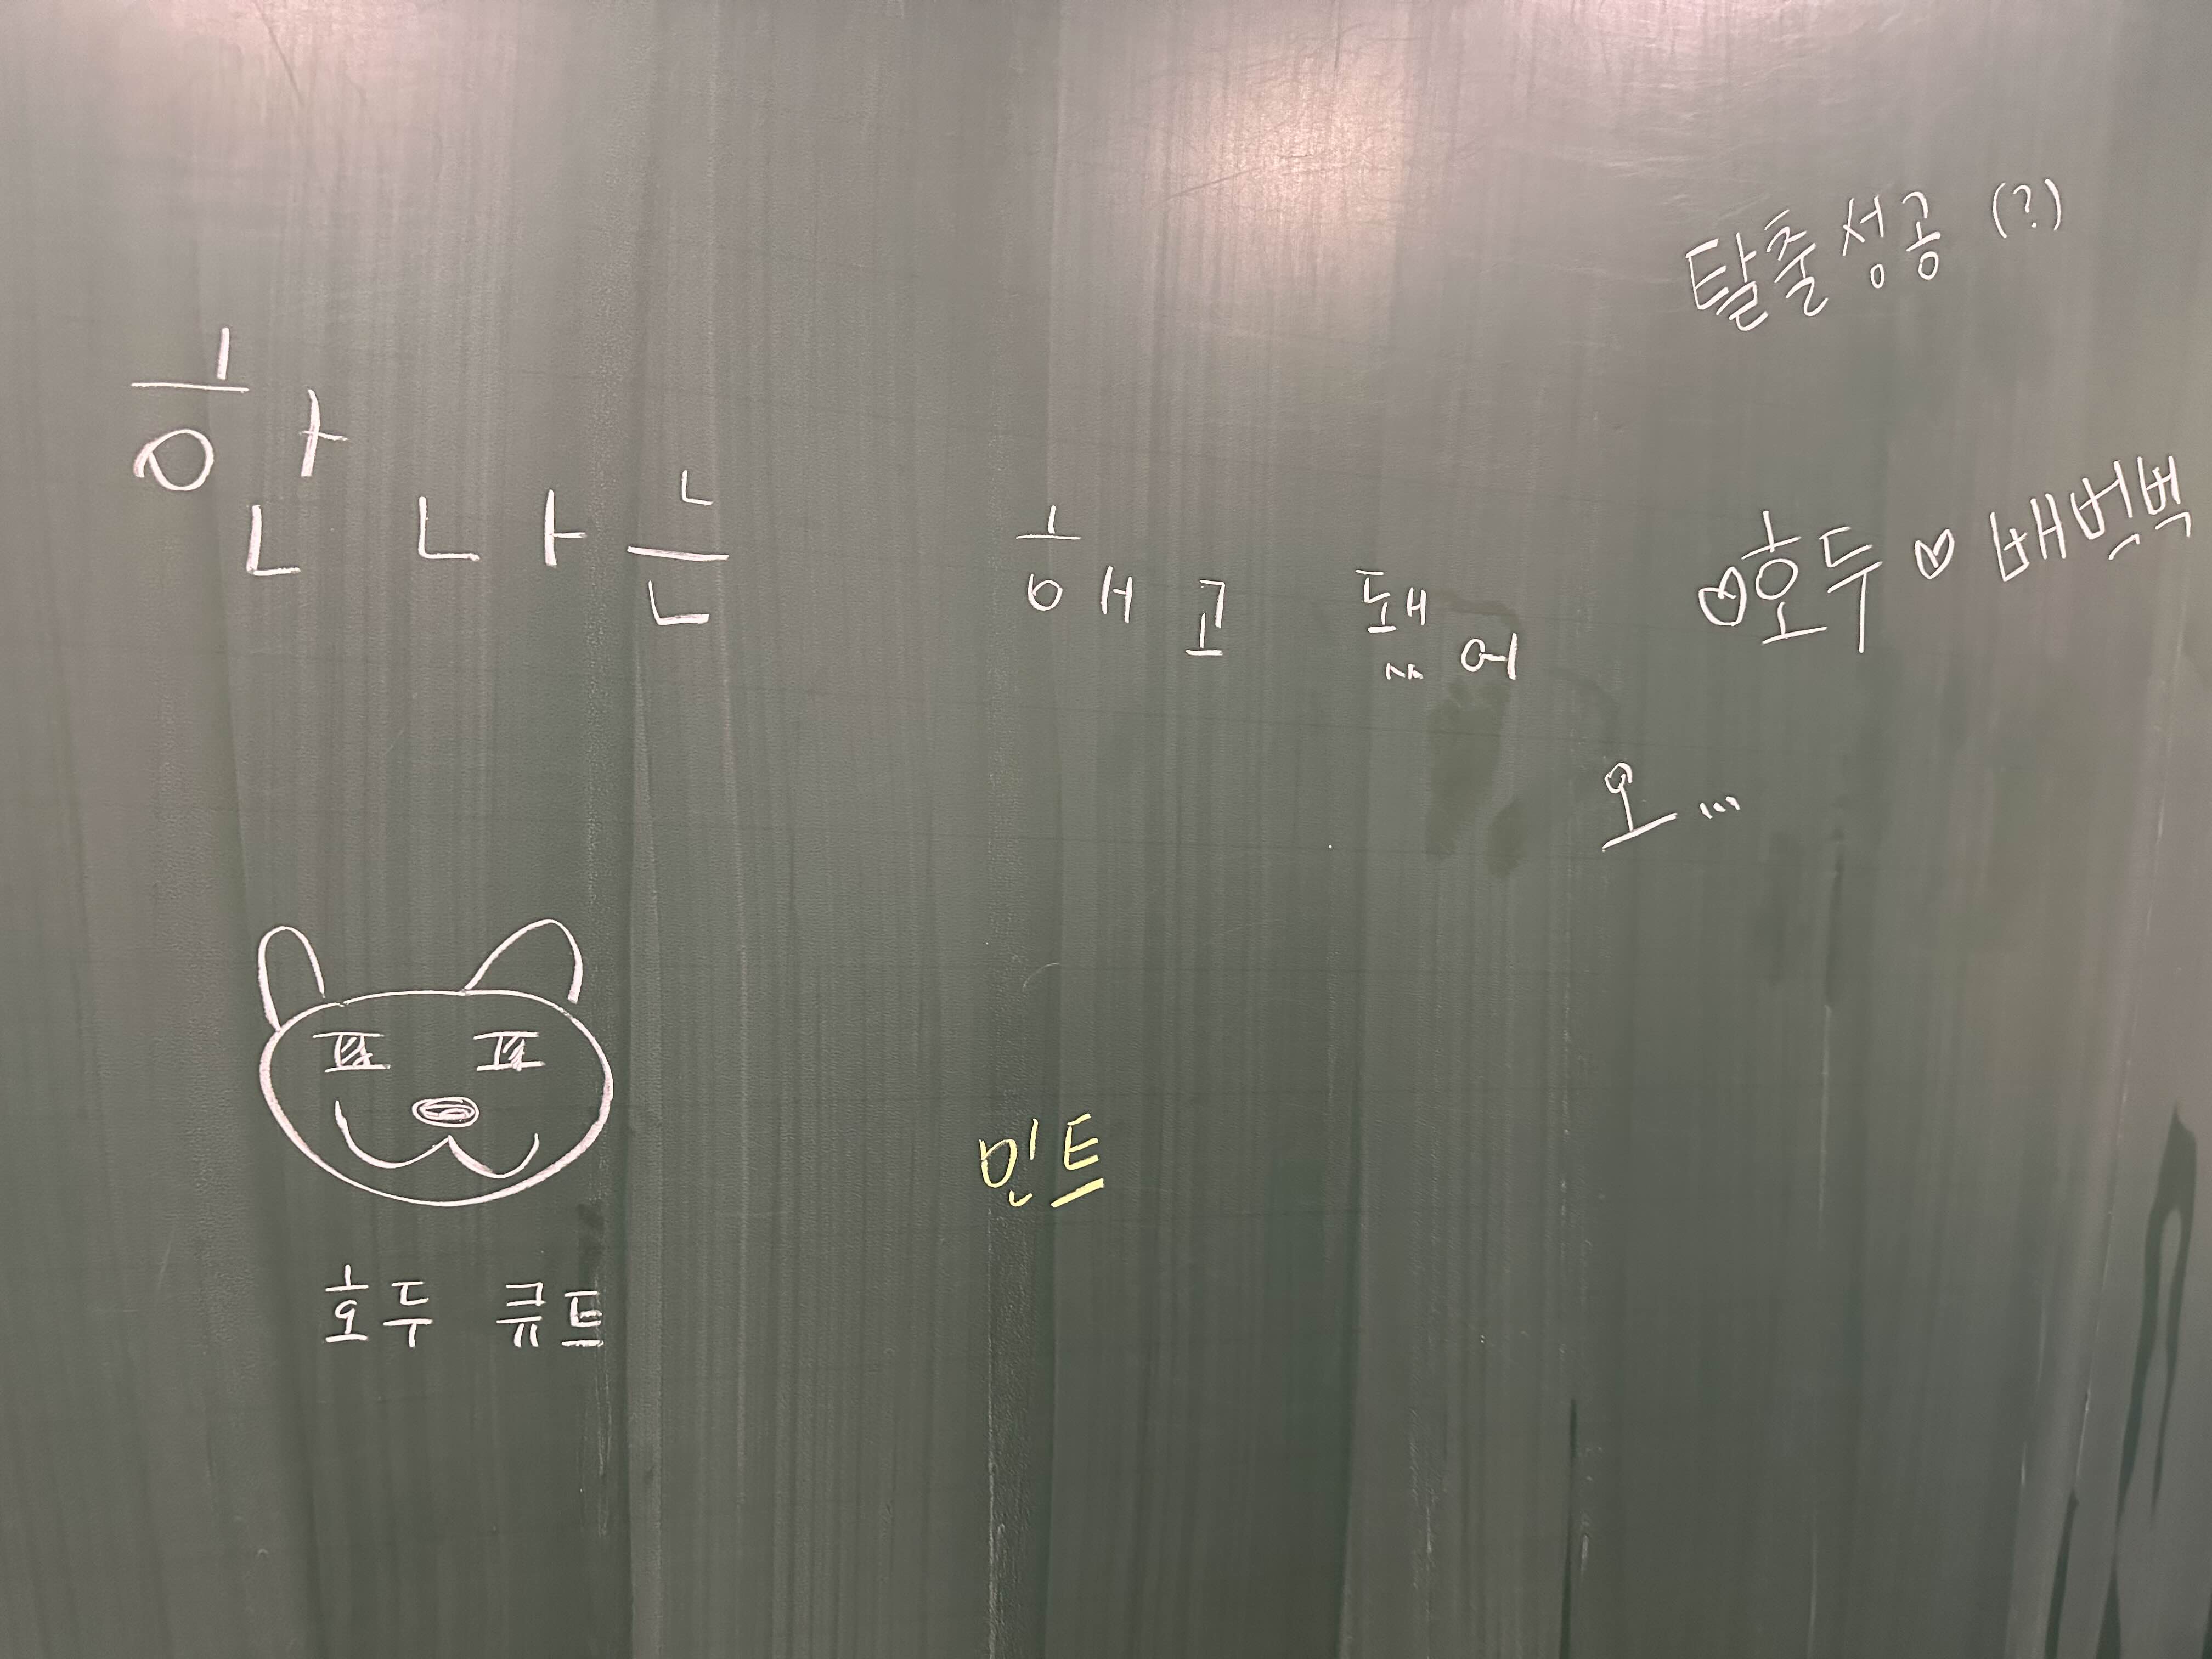 탈출성공 (?)
한나는 해고됐어
♡호두♡ 배벅벅
오...
민트
호두 큐트